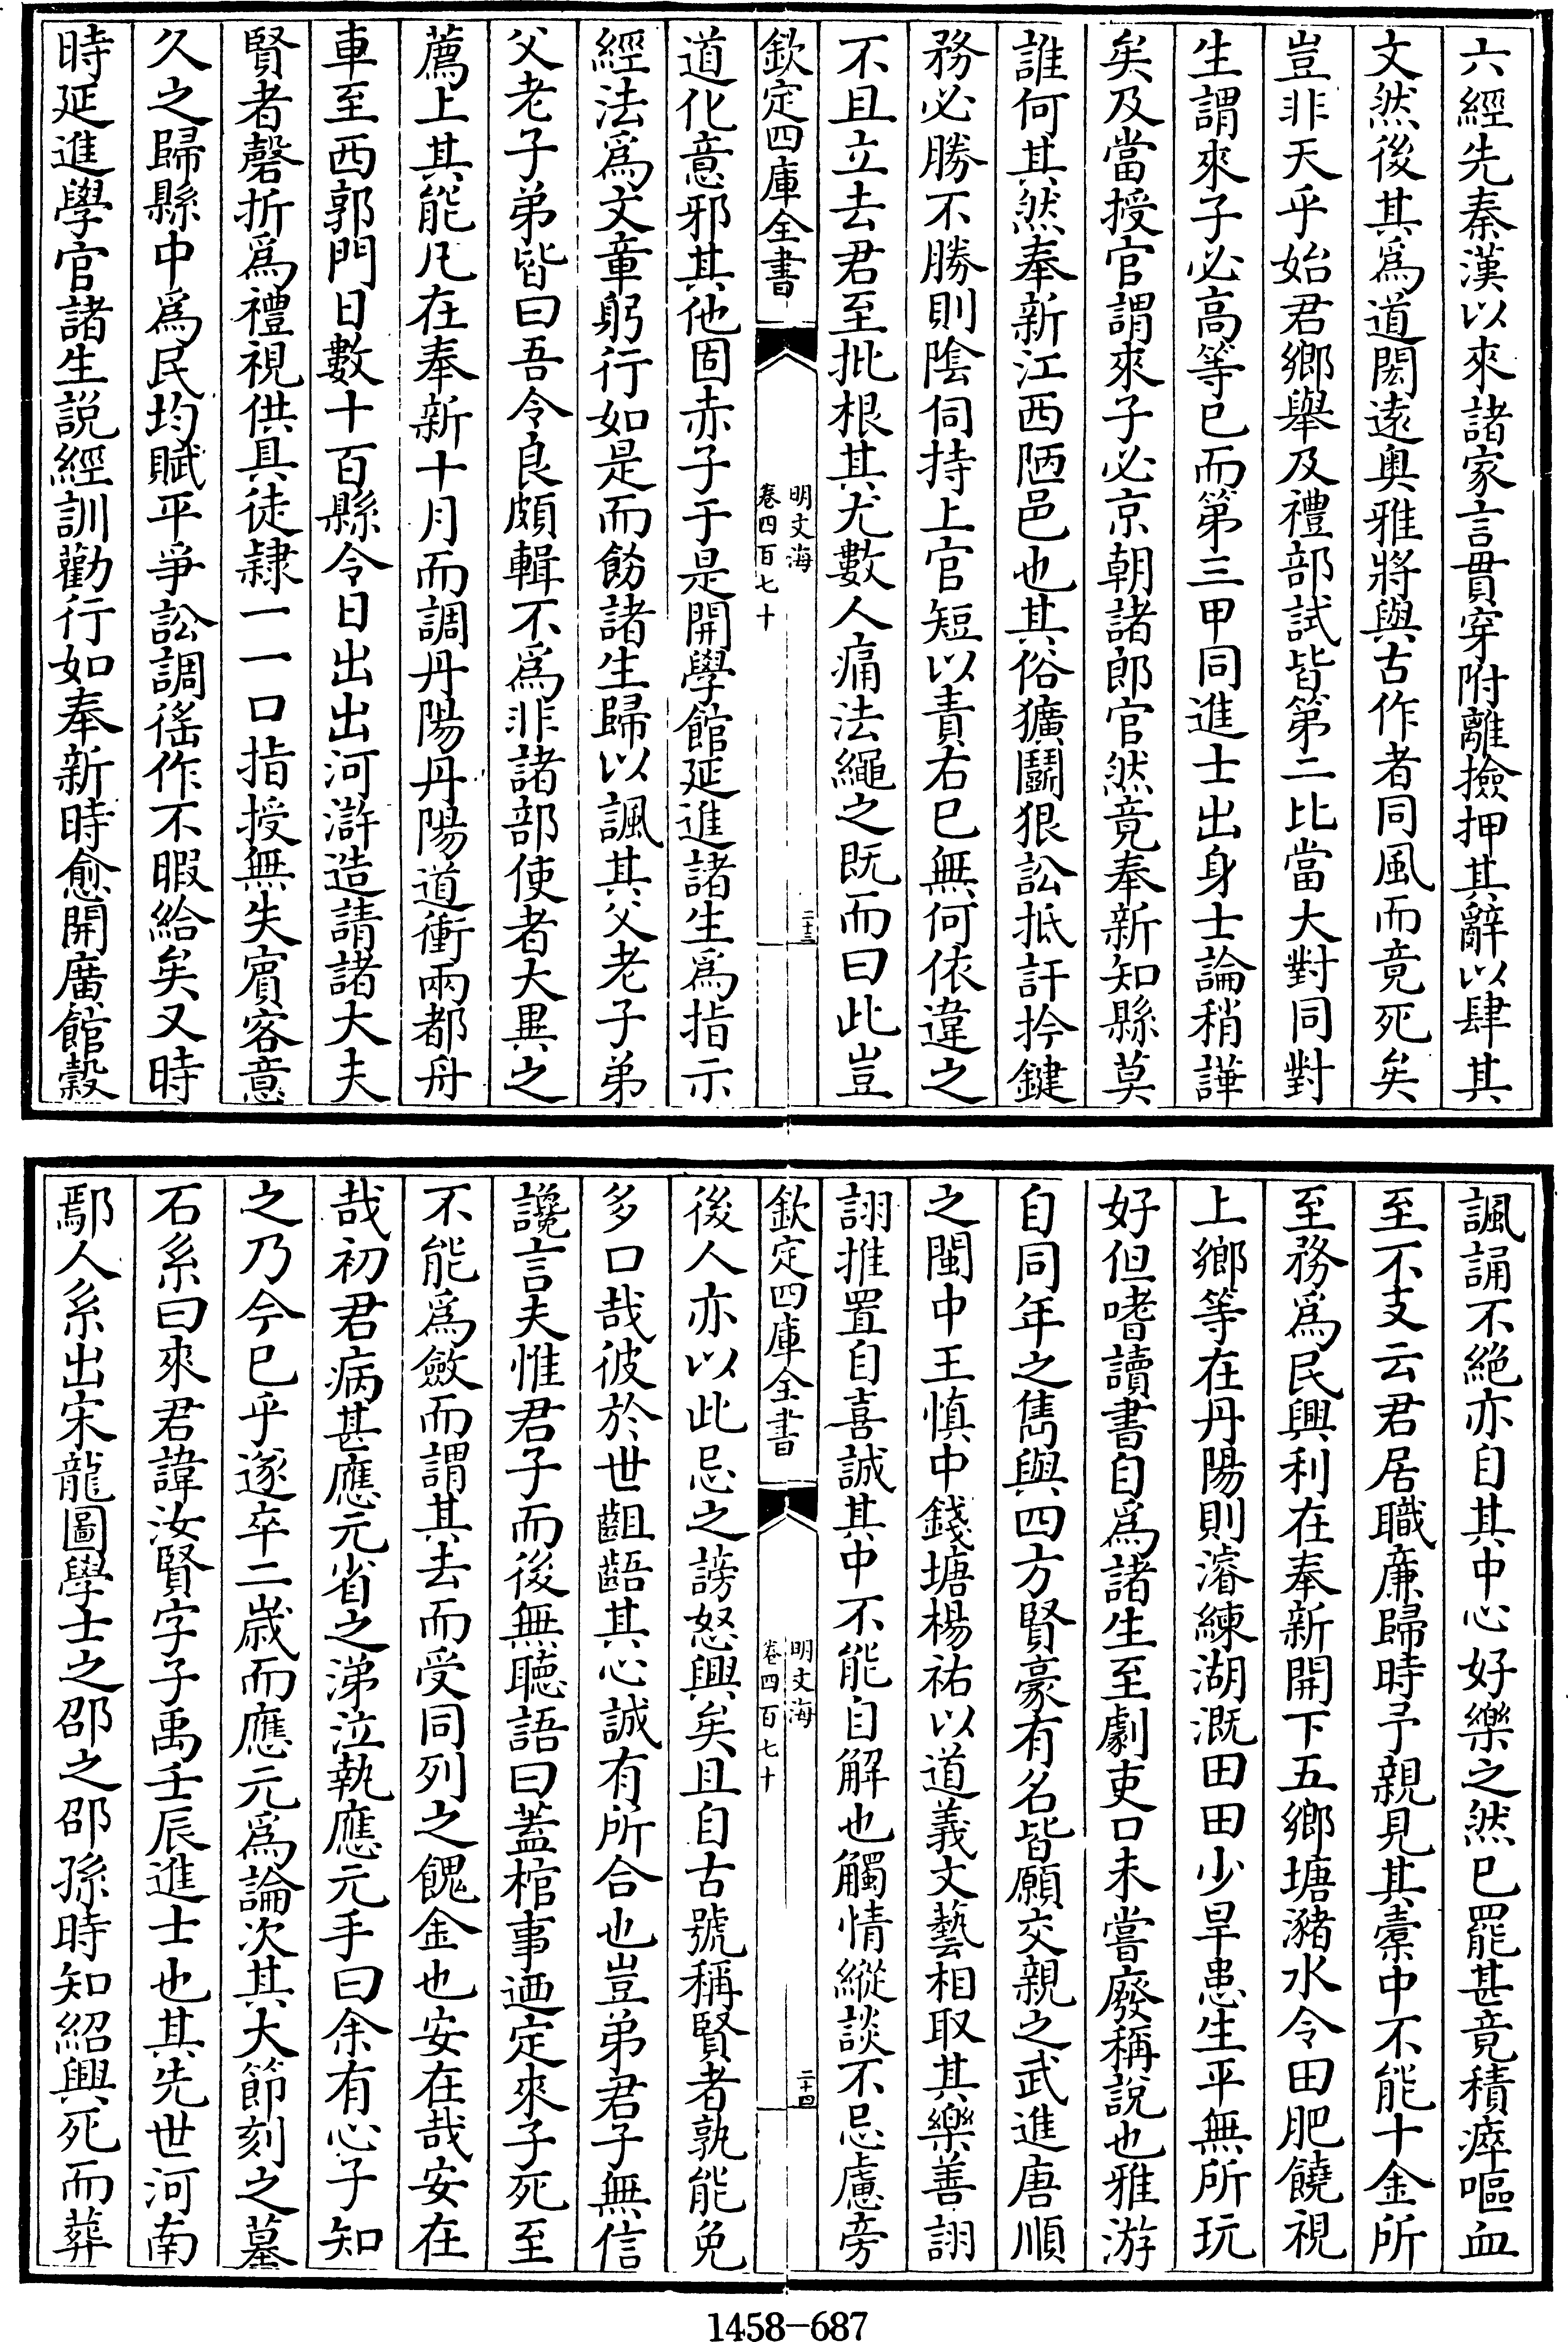 六經先秦漢以來諸家言貫穿附離撿押其辭以肆其
文然後其為道閎逺奥雅將與古作者同風而竟死矣
豈非天乎始君鄉舉及禮部試皆第二比當大對同對
生謂來子必高等已而第三甲同進士出身士論稍譁
矣及當授官謂來子必京朝諸郎官然竟奉新知縣莫
誰何其然奉新江西陋邑也其俗獷鬭狠訟抵訐扲鍵
務必勝不勝則陰伺持上官短以責右已無何依違之
不且立去君至批根其尤數人痛法繩之既而曰此豈
欽定四庫全書
明文海
卷四百七十
二十三
道化意邪其他固赤子于是開學館延進諸生為指示
經法為文章躬行如是而飭諸生歸以諷其父老子弟
父老子弟皆曰吾令良頗輯不為非諸部使者大異之
薦上其能凡在奉新十月而調丹陽丹陽道衝兩都舟
車至西郭門日數十百縣令日出出河滸造請諸大夫
賢者磬折為禮視供具徒隸一一口指授無失賓客意
久之歸縣中為民均賦平爭訟調徭作不暇給矣又時
時延進學官諸生説經訓勸行如奉新時愈開廣館榖
諷誦不絶亦自其中心好樂之然已罷甚竟積瘁嘔血
至不支云君居職亷歸時予親見其橐中不能十金所
至務為民興利在奉新開下五鄉塘瀦水令田肥饒視
上鄉等在丹陽則濬練湖溉田田少旱患生平無所玩
好但嗜讀書自為諸生至劇吏口未嘗廢稱説也雅游
自同年之雋與四方賢豪有名皆願交親之武進唐順
之閩中王慎中錢塘楊祐以道義文藝相取其樂善詡
詡推置自喜誠其中不能自解也觸情縱談不忌慮旁
欽定四庫全書
明文海
卷四百七十
二十四
後人亦以此忌之謗怒興矣且自古號稱賢者孰能免
多口哉彼於世齟齬其心誠有所合也豈弟君子無信
讒言夫惟君子而後無聽語曰葢棺事迺定來子死至
不能為斂而謂其去而受同列之餽金也安在哉安在
哉初君病甚應元省之涕泣執應元手曰余有心子知
之乃今已乎遂卒二嵗而應元為論次其大節刻之墓
石系曰來君諱汝賢字子禹壬辰進士也其先世河南
鄢人系出宋龍圖學士之邵之邵孫時知紹興死而葬
1458-687